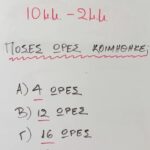 10μμ - 2μμ
ΠΟΣΕΣ ΩΡΕΣ ΚΟΙΜΗΘΗΚΕ;
Α) 4 ΩΡΕΣ
Β) 12 ΩΡΕΣ
Γ) 16 ΩΡΕΣ